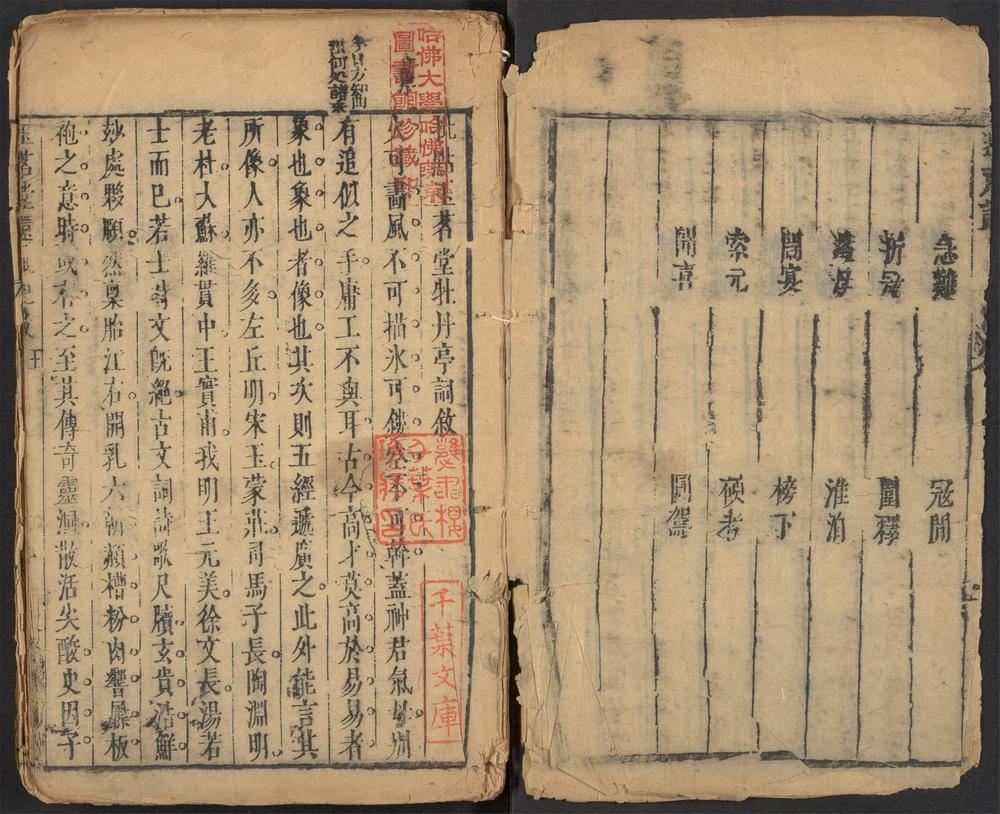 急難
冦閒
折冦
圍釋
遇母
淮泊
鬧宴
榜下
索元
硬考
聞喜
圓駕
哈佛大學哈佛燕京
圖書館珍藏印
玉茗堂牡丹亭詞敘
火可畫風不可描氷可鏤空不可斡蓋神君氣母別
有追似之手庸工不與耳古今高才莫高於易易者
象也象也者像也其次則五經遞廣之此外能言其
所像人亦不多左丘明宋玉蒙莊司馬子長陶淵明
老杜大蘇羅貫中王實甫我明王元美徐文長湯若
士而已若士時文既絕古文詞詩歌尺牘玄貴浩鮮
妙處夥頤然稟胎江右開乳六朝糟粉肉響屧板
袍之意時或有之至其傳奇靈洞散活尖酸史因子
千葉文庫